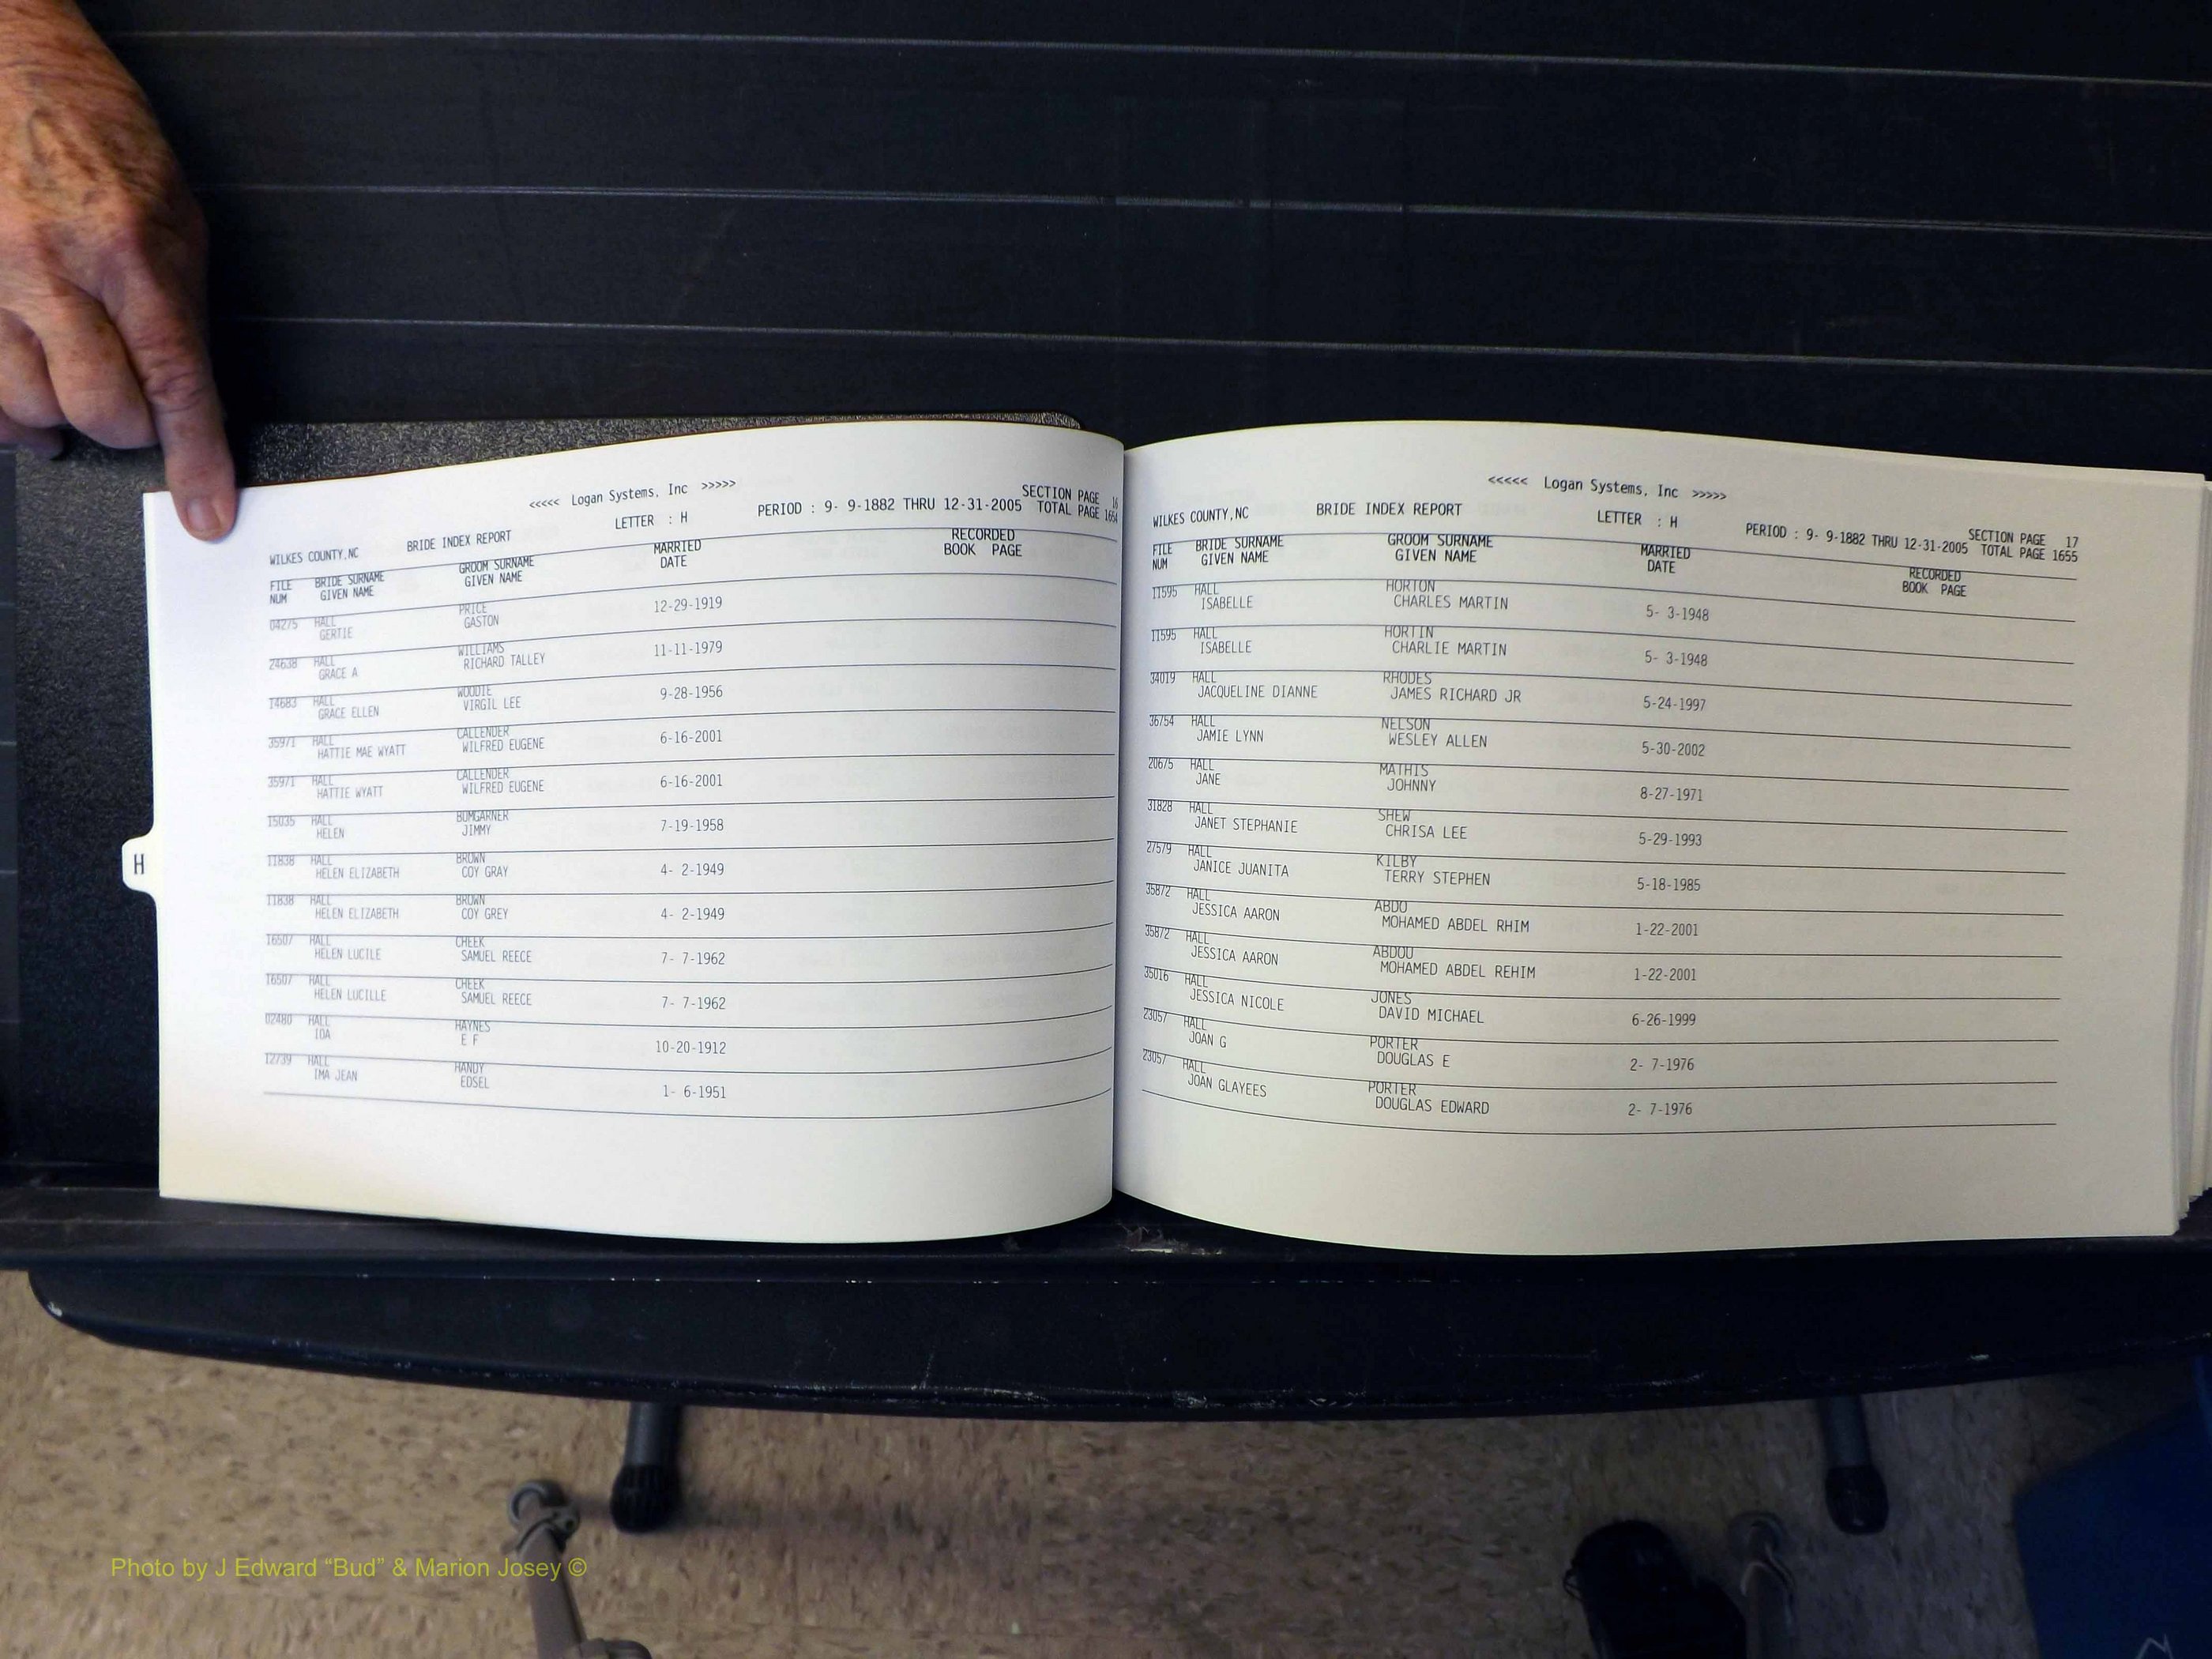 <<<<< Logan Systems, Inc >>>>>
SECTION PAGE 16
WILKES COUNTY,NC BRIDE INDEX REPORT LETTER : H PERIOD : 9- 9-1882 THRU 12-31-2005 TOTAL PAGE 1654
FILE BRIDE SURNAME GROOM SURNAME MARRIED RECORDED
NUM GIVEN NAME GIVEN NAME DATE BOOK PAGE
04275 HALL PRICE 12-29-1919
GERTIE GASTON
24638 HALL WILLIAMS 11-11-1979
GRACE A RICHARD TALLEY
14683 HALL WOODIE 9-28-1956
GRACE ELLEN VIRGIL LEE
35971 HALL CALLENDER 6-16-2001
HATTIE MAE WYATT WILFRED EUGENE
35971 HALL CALLENDER 6-16-2001
HATTIE WYATT WILFRED EUGENE
15035 HALL BUMGARNER 7-19-1958
HELEN JIMMY
11838 HALL BROWN 4- 2-1949
HELEN ELIZABETH COY GRAY
11838 HALL BROWN 4- 2-1949
HELEN ELIZABETH COY GREY
16507 HALL CHEEK 7- 7-1962
HELEN LUCILE SAMUEL REECE
16507 HALL CHEEK 7- 7-1962
HELEN LUCILLE SAMUEL REECE
02480 HALL HAYNES 10-20-1912
IDA E F
12739 HALL HANDY 1- 6-1951
IMA JEAN EDSEL
H
<<<<< Logan Systems, Inc >>>>>
SECTION PAGE 17
WILKES COUNTY,NC BRIDE INDEX REPORT LETTER : H PERIOD : 9- 9-1882 THRU 12-31-2005 TOTAL PAGE 1655
FILE BRIDE SURNAME GROOM SURNAME MARRIED RECORDED
NUM GIVEN NAME GIVEN NAME DATE BOOK PAGE
11595 HALL HORTON 5- 3-1948
ISABELLE CHARLES MARTIN
11595 HALL HORTIN 5- 3-1948
ISABELLE CHARLIE MARTIN
34019 HALL RHODES 5-24-1997
JACQUELINE DIANNE JAMES RICHARD JR
36754 HALL NELSON 5-30-2002
JAMIE LYNN WESLEY ALLEN
20675 HALL MATHIS 8-27-1971
JANE JOHNNY
31828 HALL SHEW 5-29-1993
JANET STEPHANIE CHRISA LEE
27579 HALL KILBY 5-18-1985
JANICE JUANITA TERRY STEPHEN
35872 HALL ABDO 1-22-2001
JESSICA AARON MOHAMED ABDEL RHIM
35872 HALL ABDOU 1-22-2001
JESSICA AARON MOHAMED ABDEL REHIM
35016 HALL JONES 6-26-1999
JESSICA NICOLE DAVID MICHAEL
23057 HALL PORTER 2- 7-1976
JOAN G DOUGLAS E
23057 HALL PORTER 2- 7-1976
JOAN GLAYEES DOUGLAS EDWARD
Photo by J Edward “Bud” & Marion Josey ©